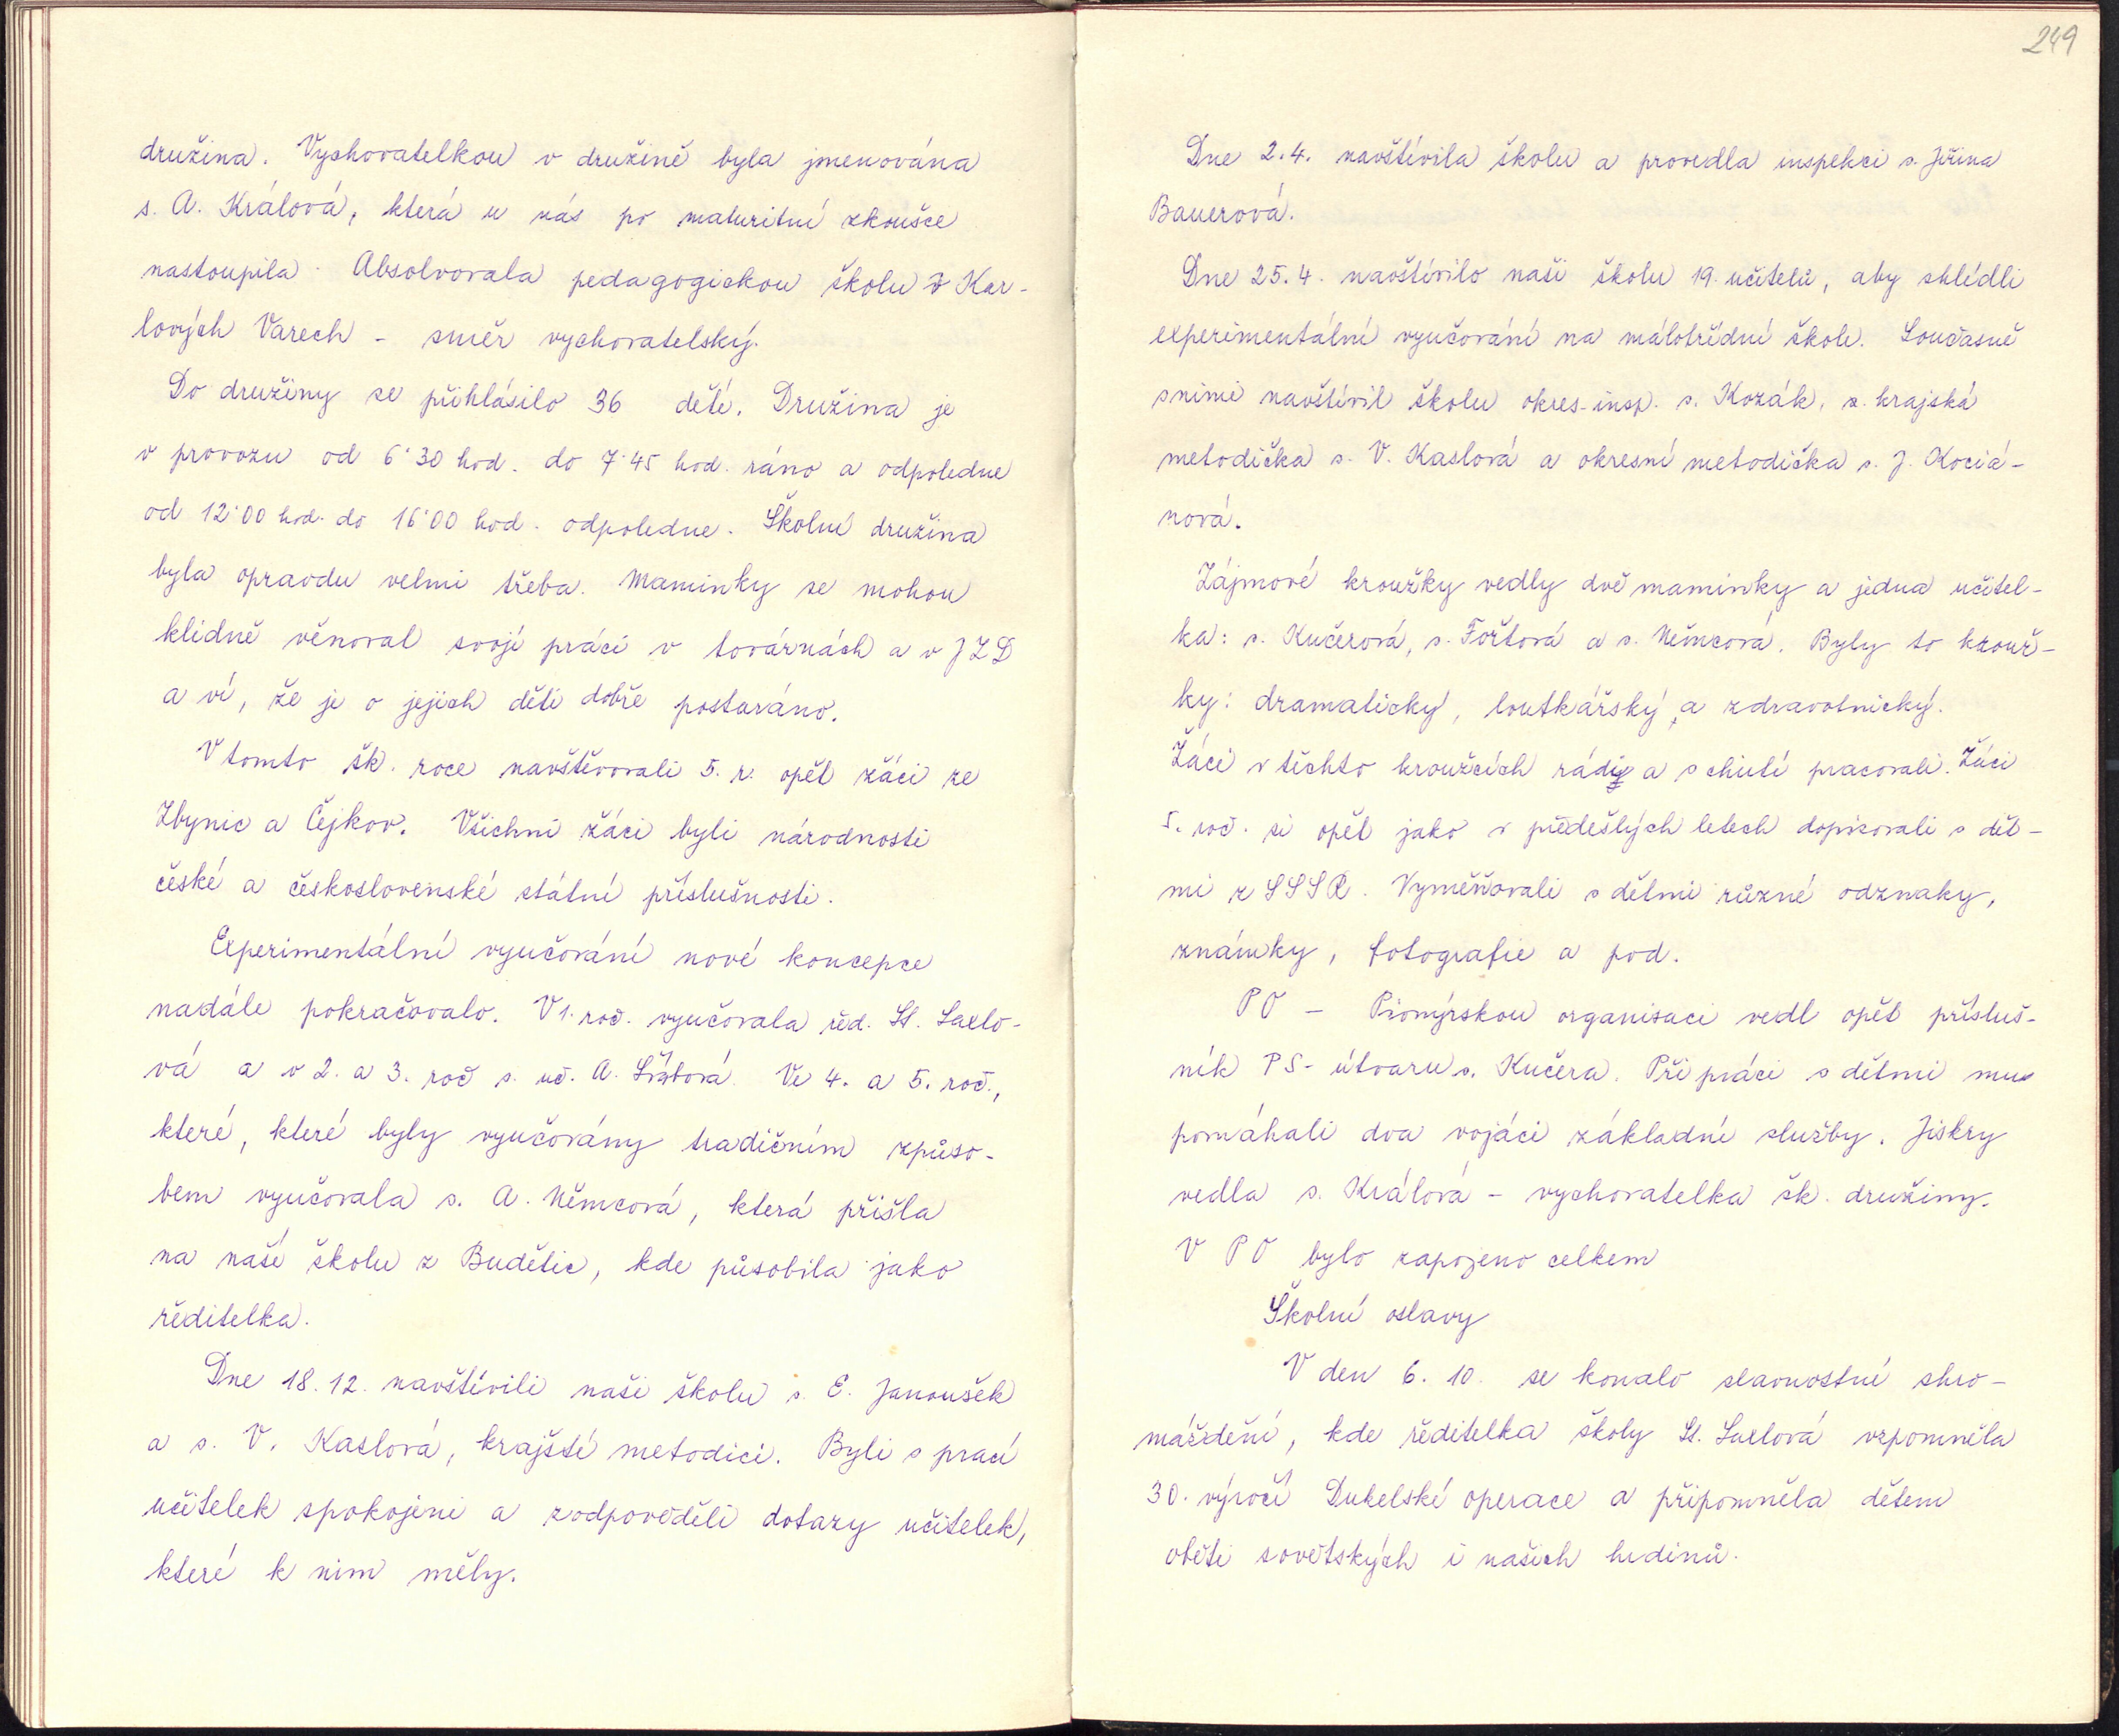 družina. Vychovatelkou v družině byla jmenována
s. A. Králová, která u nás po maturitní zkoušce
nastoupila. Absolvovala pedagogickou školu v Kar-
lových Varech - směr vychovatelský.
Do družiny se přihlásilo 36 dětí. Družina je
v provozu od 6˙30 hod. do 7˙45 hod. ráno a odpoledne
od 12˙00 hod. do 16˙00 hod. odpoledne. Školní družina
byla opravdu velmi třeba. Maminky se mohou
klidně věnoval svojí práci v továrnách a v JZD
a ví, že je o jejich děti dobře postaráno.
V tomto šk. roce navštěvovali 5. r. opět žáci ze
Zbynic a Čejkov. Všichni žáci byli národnosti
české a československé státní příslušnosti.
Experimentální vyučování nové koncepce
nadále pokračovalo. V 1. roč. vyučovala řed. St. Saxlo-
vá a v 2. a 3. roč s. uč. A. Ve 4. a 5. roč.,
které, které byly vyučovány tradičním způso-
bem vyučovala s. A. Němcová, která přišla
na naší školu z Budětic, kde působila jako
ředitelka.
Dne 18. 12. navštívili naši školu s. E. Janoušek
a s. V. Kaslová, krajští metodici. Byli s prací
učitelek spokojeni a zodpověděli dotazy učitelek,
které k nim měly.
249
Dne 2. 4. navštívila školu a provedla inspekci s. Jiřina
Bauerová.
Dne 25. 4. navštívilo naši školu 19. učitelů, aby shlédli
experimentální vyučování na málotřídní škole. Současně
snimi navštívil školu okres. insp. s. Kozák, s. krajská
metodička s. V. Kaslová a okresní metodička s. J. Kociá-
nová.
Zájmové kroužky vedly dvě maminky a jedna učitel-
ka: s. Kučerová, s. Fořtová a s. Němcová. Byly to krouž-
ky: dramatický, loutkářský, a zdravotnický.
Žáci v těchto kroužcích rádi a s chutí pracovali. Žáci
5. roč. si opět jako v předešlých letech dopisovali s dět-
mi z SSSR. Vyměňovali s dětmi různé odznaky,
známky, fotografie a pod.
PO - Pionýrskou organisaci vedl opět přísluš-
ník PS - útvaru s. Kučera. Při práci s dětmi mu
pomáhali dva vojáci základní služby. Jiskry
vedla s. Králová - vychovatelka šk. družiny.
V PO bylo zapojeno celkem
Školní oslavy
V den 6. 10. se konalo slavnostní shro-
máždění, kde ředitelka školy St. Saxlová vzpomněla
30. výročí Dukelské operace a připomněla dětem
oběti sovětských i našich hrdinů.